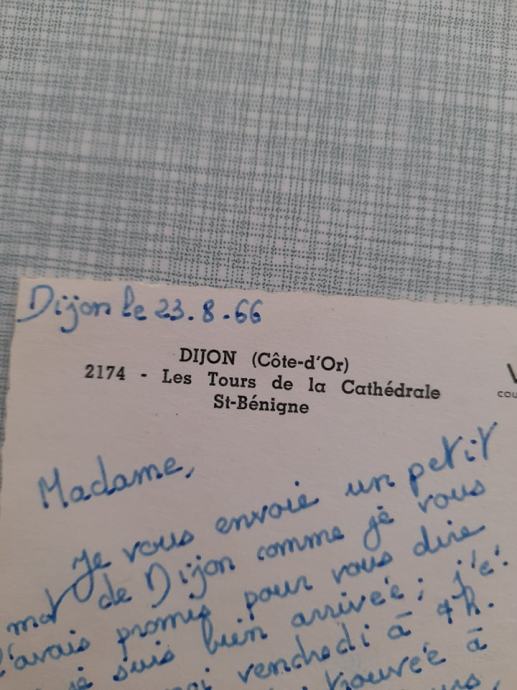 Dijon le 23.8.66
DIJON (Côte-d'Or)
2174 - Les Tours de la Cathédrale
St-Bénigne
Madame,
Je vous envoie un petit
mot de Dijon comme je vous
l'avais promis pour vous dire
suis bien arrivée ; j'é
vendredi à 4h.
trouvée à